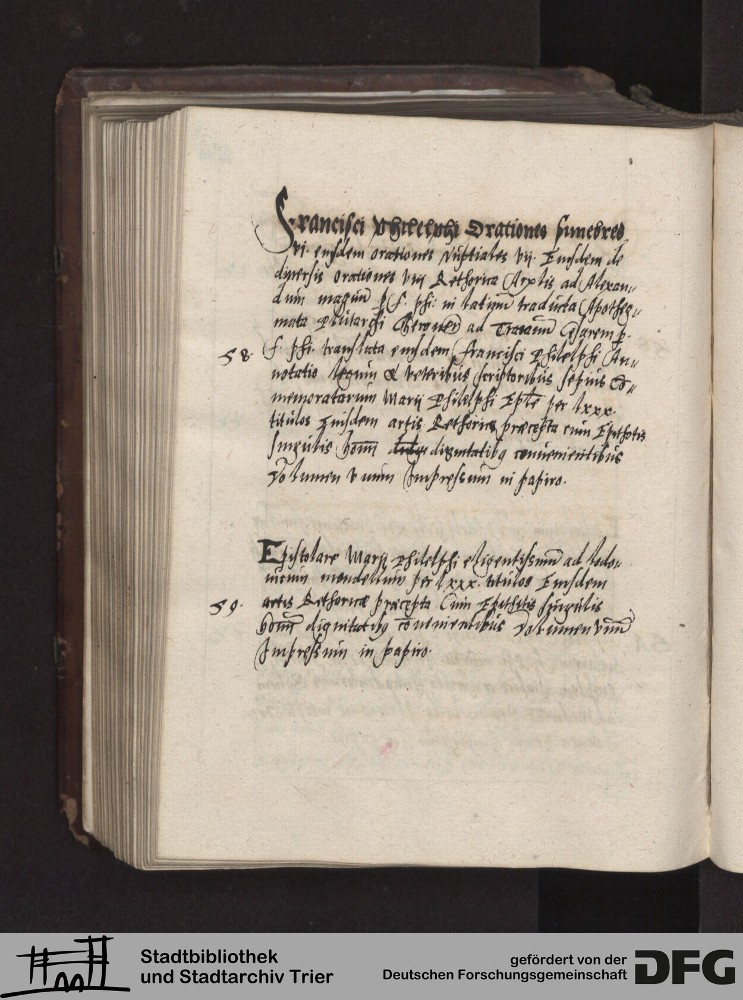 Francisci Philelphi Orationes funebres
vi. eiusdem orationes nuptiales vij. Eiusdem de
diuersis orationes viij Rethorica Arptis ad Alexan„
drum magnũ p f. phi. in latinum traducta Apotheg„
mata Plutarchi ad Traianũ Cesarem p.
58. f. phi. translata eiusdem francisci Philelphi An„
notatio legum & veteribus scriptoribus sepius Co„
memoratarum Marij Philelphi Eptẽ per lxxx.
titulos Eiusdem artis Rethorice precepta cum Epithetis
singulis homĩ dignitatibꝫ conuenientibus
Volumen vnum Impressum in papiro.
Epistolare Marij Philelphi eligentissimũ ad lodo„
uicum mondellum per lxxx. titulos Eiusdem
59. artis Rethorice precepta Cum Epithetis singulis
homĩ dignitatibꝫ cõuenientibus Volumen vnũ
Impressum in papiro.
Stadtbibliothek
und Stadtarchiv Trier
gefördert von der
Deutschen Forschungsgemeinschaft
DFG